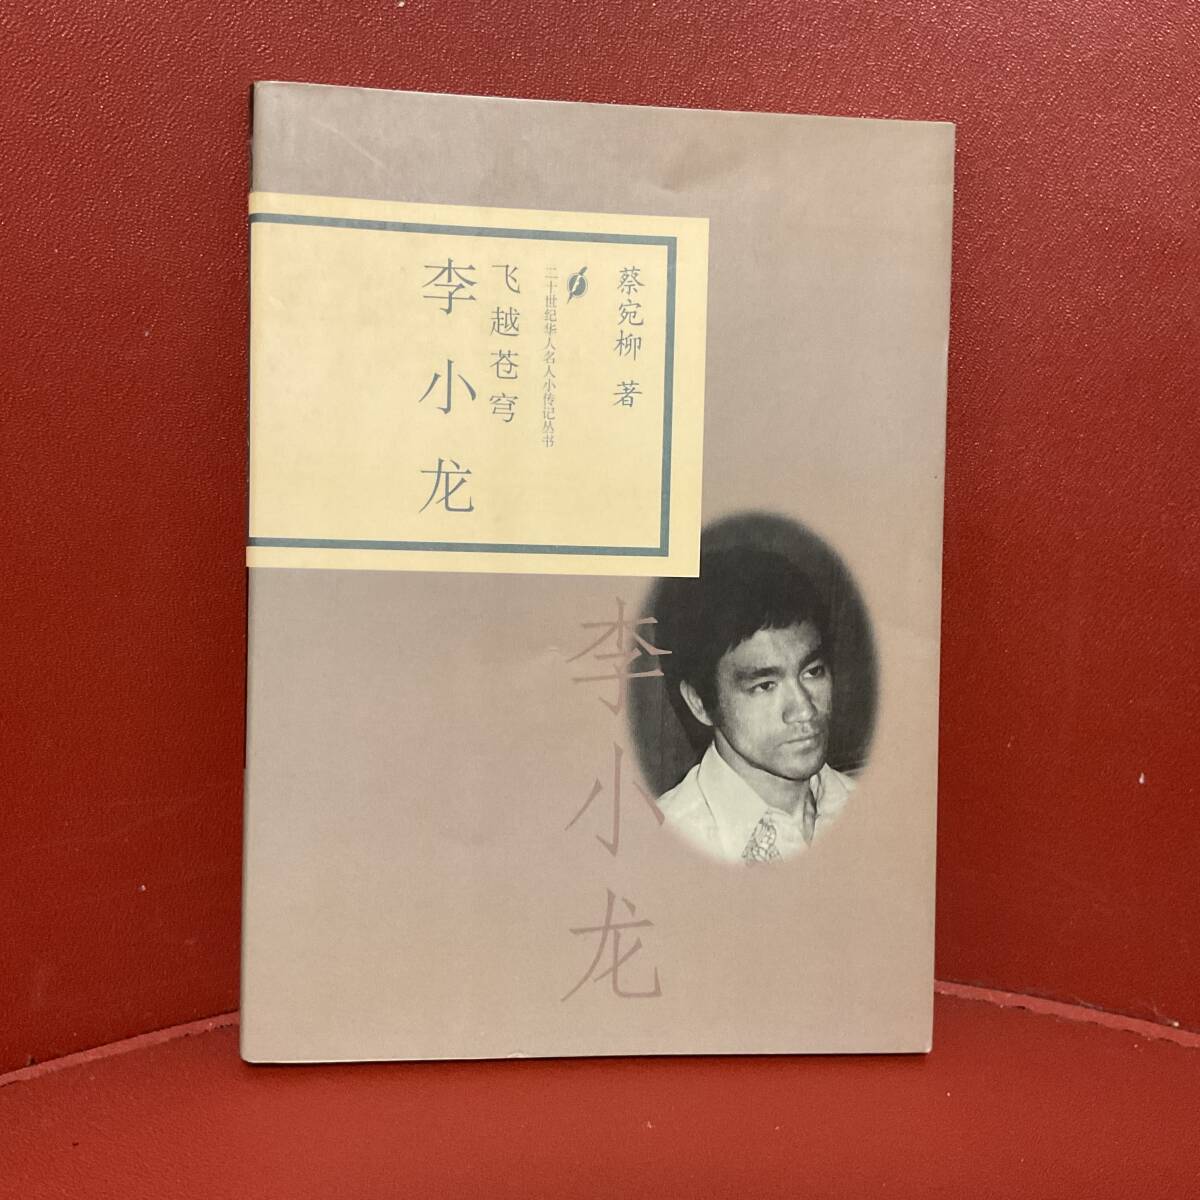 蔡宛柳 著
二十世纪华人名人小传记丛书
飞越苍穹
李小龙
李小龙